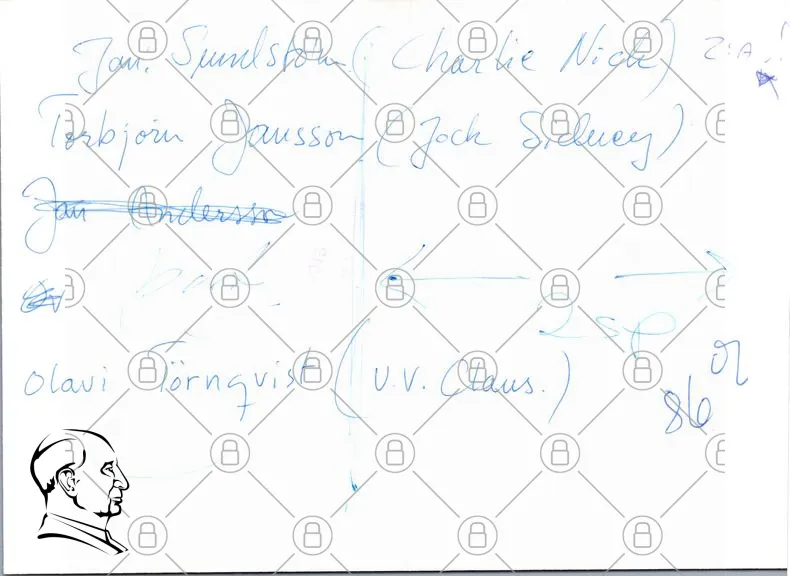 Jan. Sundström (Charlie Nick)
Torbjörn Jansson (Jock Sidney)
Jan Andersson
2 sp
Olavi Törnqvist (U.V. Claus.)
86